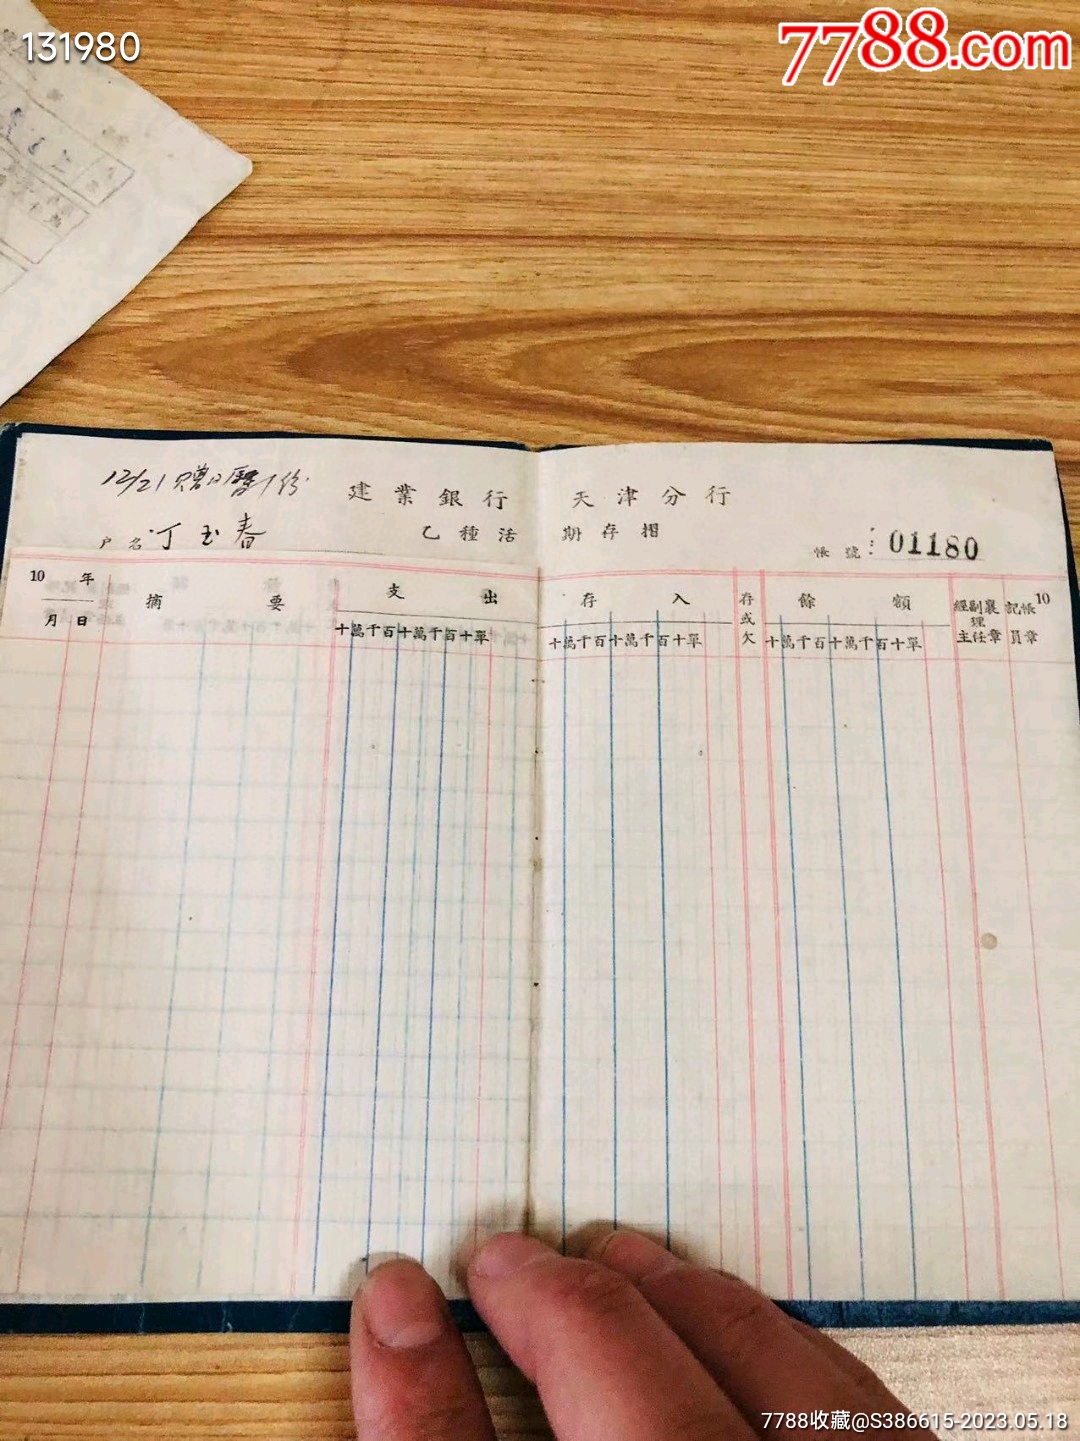 131980
7788.com
12/21 贈日曆1份
建業銀行 天津分行
户名 丁玉春
乙種活期存摺
帳號: 01180
10 年
月 日
摘 要
支 出
十萬千百十萬千百十單
存 入
十萬千百十萬千百十單
存或欠
餘 額
十萬千百十萬千百十單
經副襄理
主任章
記帳
員章
10
7788收藏@S386615-2023.05.18